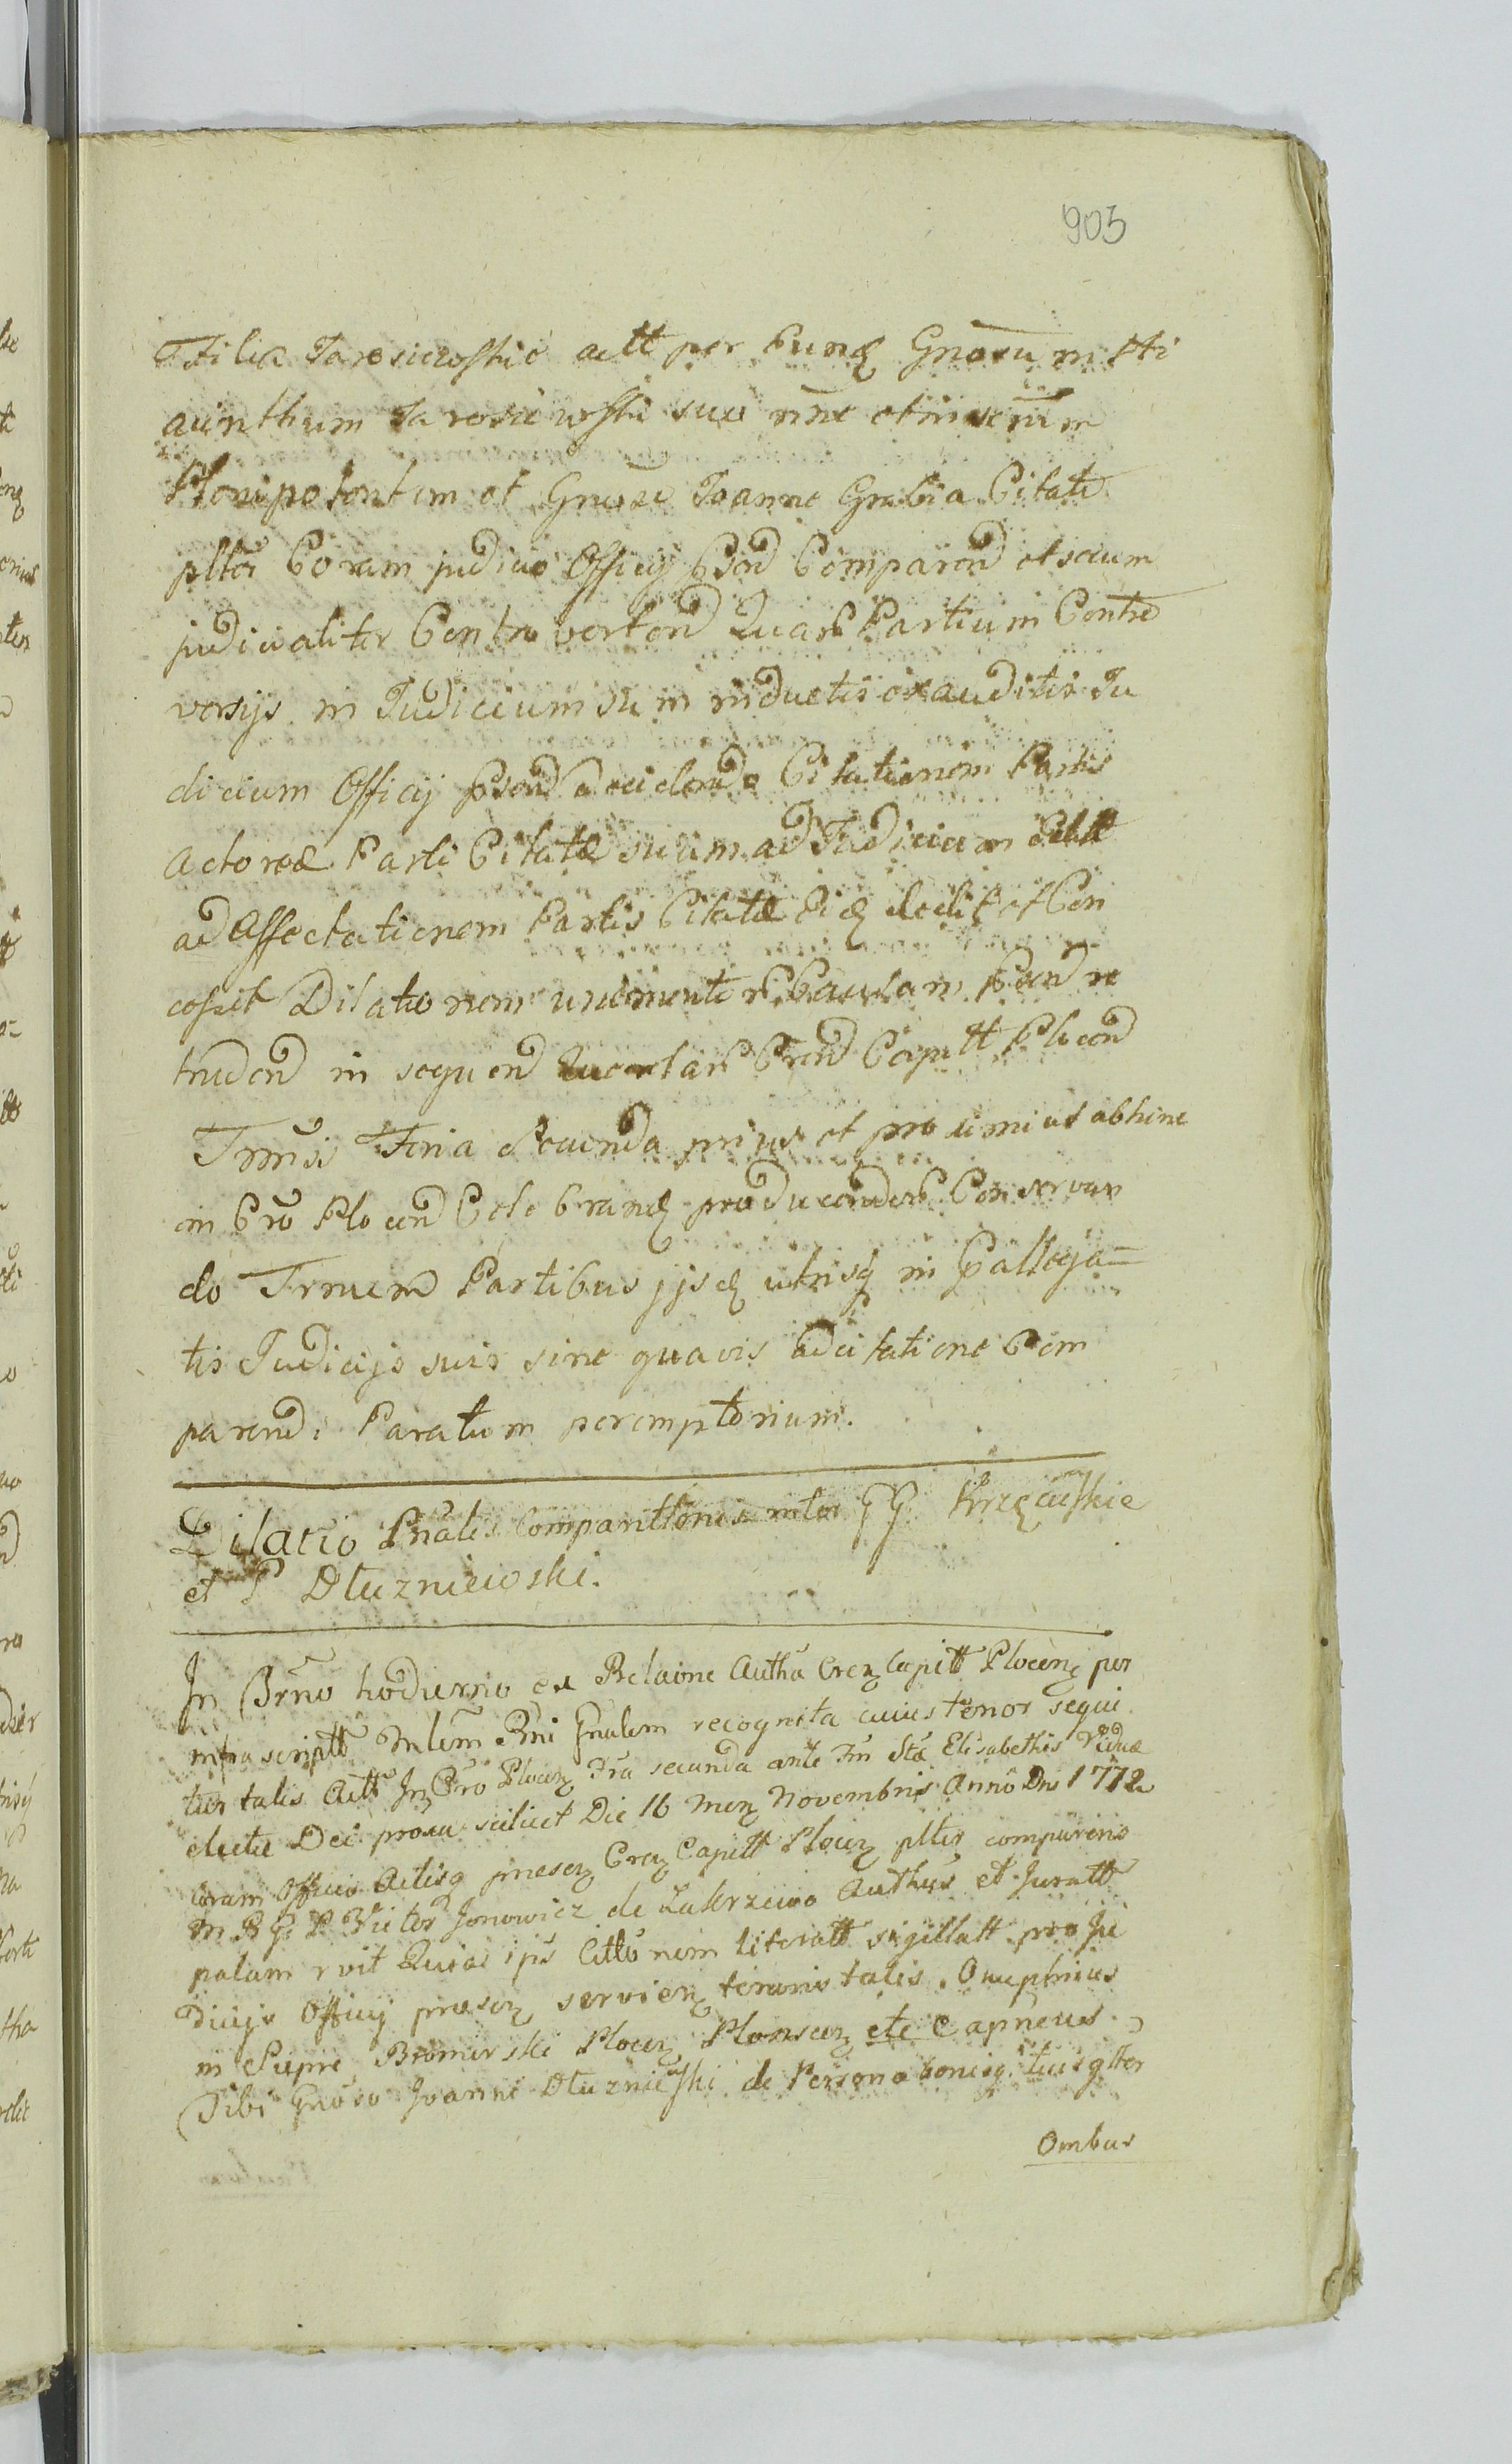 903
Filia Jarosiewskie actt per eundꝫ Gnosum Hi
acinthum Jarosiewski suo nñe et inscrum
Plenipotentem et Gnoso Joanne Grabia Citati
plter Coram judicio Officij psend Comparend et secum
judicialiter Controvertend Quarũ Partium Contro
versijs in Judicium sum inductis exauditis Ju
dicium Officij psend decidendo Citationem Partis
Actoreæ Parti Citatæ suum ad Judicium
ad Affectationem Partis Citatæ Eidꝫ dedit et Con
cessit Dilationem ad munimenta Causam psend re
trudend in sequend Querelarũ Crend Capitt Plocend
Trmis Feria Secunda prius et proximius abhinc
in Cro Plocend Celebrandꝫ producendorũ Conservan
do Trnum Partibus ijsdꝫ utrisqꝫ in pallega=
tis Judicijs suis sine quavis adcitatione Com
parendi Paratum peremptorium.
Dilatio Pñalis Comparitionis inter GG Krzęcieskie
et P Dłuzniewski.
In Trno hodierno ex Relaione Autha Crenꝫ Capitt Plocenꝫ per
infrascriptt Mlem Rni Gnalem recognita cuius tenor sequi
tur talis Actt In Cro Plocenꝫ Fra secunda ante Fm Stæ Elisabethis Viduæ
electæ Dei proxa scilicet Die 16 Menꝫ Novembris Anno Dni 1772
coram Officio Actisqꝫ præsenꝫ Crenꝫ Capitt Plocenꝫ plter comparens
M R G P Victor Jonowicz de Zakrzewo Authus et Juratt
palam rvit Quia ipse Cittonem literatt sigillatt pro Ju
dicijs Officij præsenꝫ servienꝫ tenoris talis. Onuphrius
in Siepre Bromirski Plocenꝫ Plonscenꝫ etc Capneus
Tibi Gnoso Joanni Dłuzniewski de Persona bonisqꝫ tuis glter
Ombus